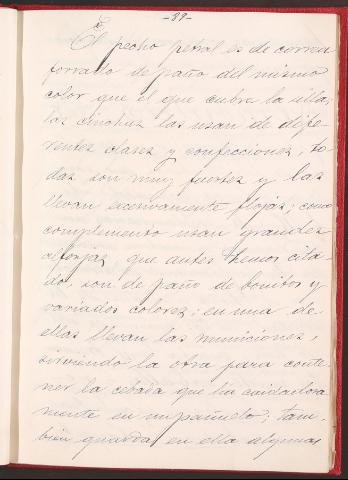 -99-
El pecho petral es de correa
forrado de paño del mismo
color que el que cubre la silla;
las cinchas las usan de dife-
rentes clases y confecciones, to-
das son muy fuertes y las
llevan excesivamente flojas; como
complemento usan grandes
alforjas, que antes hemos cita-
do, son de paño de bonitos y
variados colores; en una de
ellas llevan las municiones,
sirviendo la otra para conte-
ner la cebada que lía cuidadosa
mente en un pañuelo; tam-
bién guarda en ella algunos